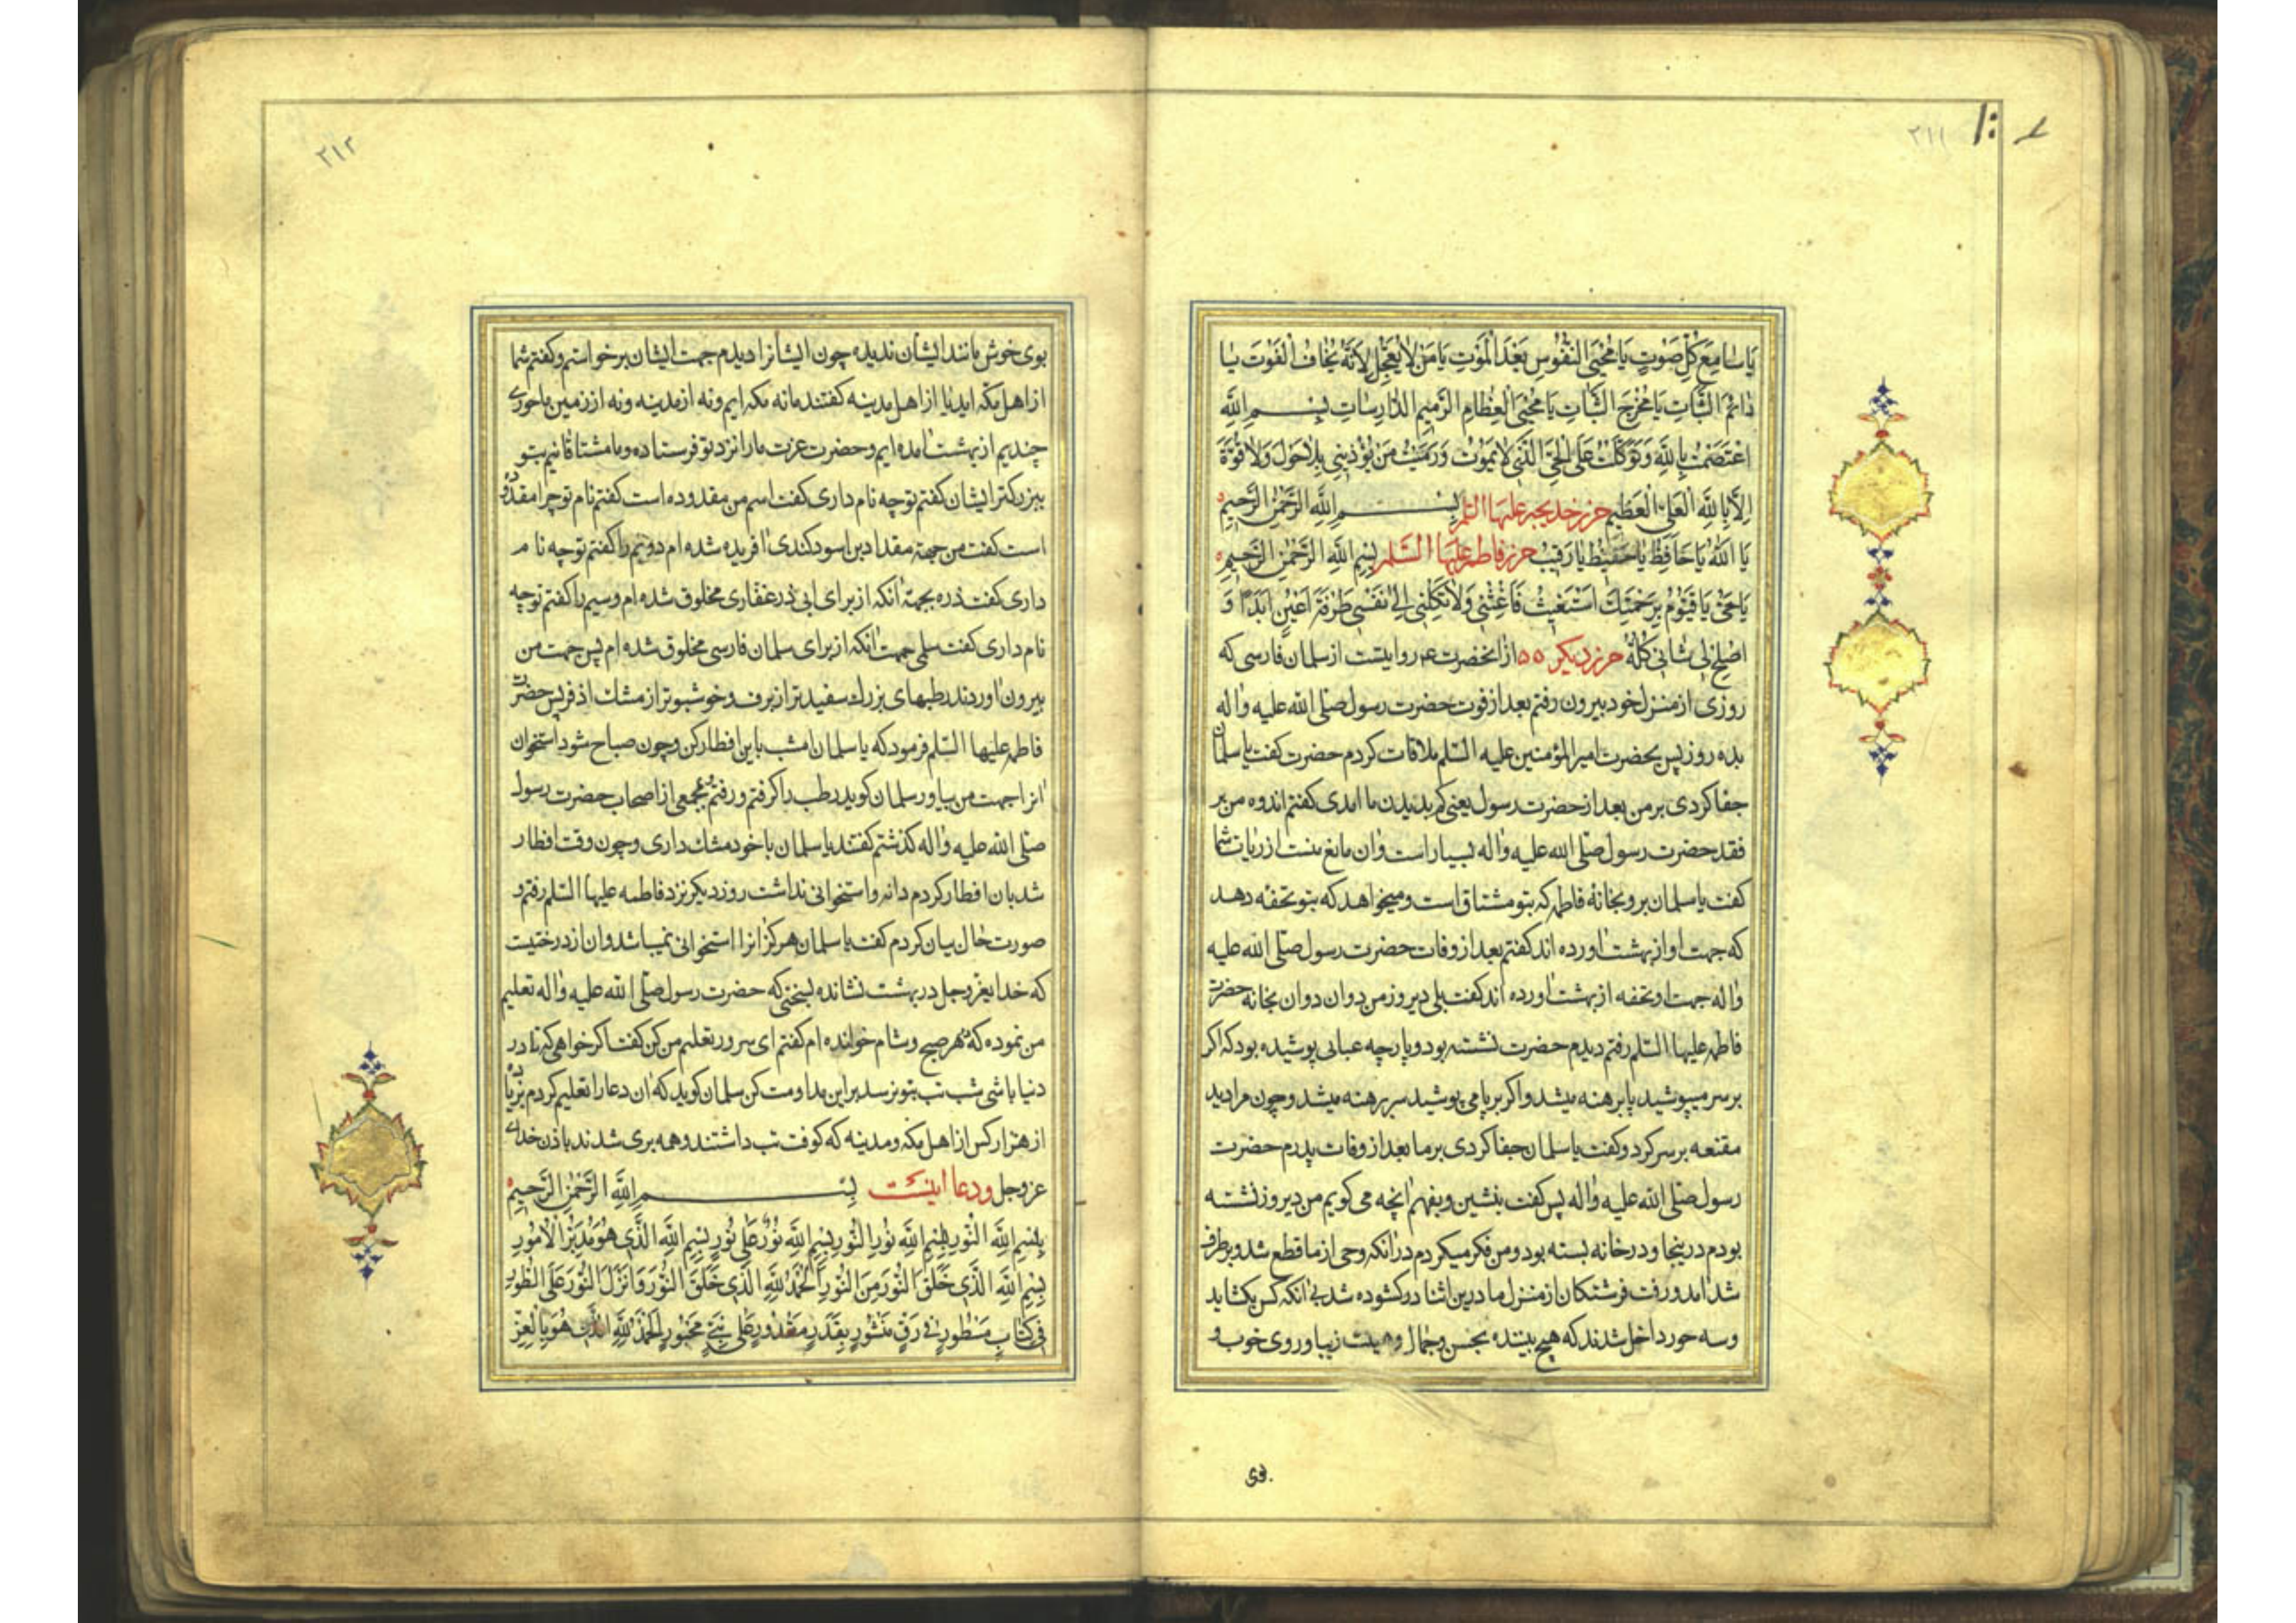 ۲۱۱
یا سامِعَ کُلِّ صَوْتٍ یا مُحْیِیَ النُّفُوسِ بَعْدَ الْمَوْتِ یا مَنْ لا یَعْجَلُ لِاَنَّهُ یَخافُ الْفَوْتَ یا
دائِمَ الثَّباتِ یا مُخْرِجَ النَّباتِ یا مُحْیِیَ الْعِظامِ الرَّمیمِ الدّارِساتِ بِسْمِ اللّهِ
اعْتَصَمْتُ بِاللّهِ وَ تَوَکَّلْتُ عَلَی الْحَیِّ الَّذی لا یَمُوتُ وَ رَمَیْتُ مَنْ یُؤْذینی بِلا حَوْلَ وَلا قُوَّةَ
اِلّا بِاللّهِ الْعَلِیِّ الْعَظیمِ حرز خدیجه علیها السّلم بِسْمِ اللّهِ الرَّحْمنِ الرَّحیمِ
یا اَللّهُ یا حافِظُ یا حَفیظُ یا رَقیبُ حرز فاطمه علیها السّلم بِسْمِ اللّهِ الرَّحْمنِ الرَّحیمِ
یا حَیُّ یا قَیُّومُ بِرَحْمَتِکَ اَسْتَغیثُ فَاَغِثْنی وَلا تَکِلْنی اِلی نَفْسی طَرْفَةَ عَیْنٍ اَبَدًا وَ
اَصْلِحْ لی شَانی کُلَّهُ حرز دیکر ٥٥ از انحضرت ع روایتست از سلمان فارسی که
روزی از منزل خود بیرون رفتم بعد از فوت حضرت رسول صلّی اللّه علیه واله
بده روز پس بحضرت امیرالمؤمنین علیه السّلم ملاقات کردم حضرت کفت یا سلمان
جفا کردی بر من بعد از حضرت رسول یعنی کم بدیدن ما امدی کفتم اندوه من بر
فقد حضرت رسول صلّی اللّه علیه واله بسیار است وان مانع منست از زیارت شما
کفت یا سلمان برو بخانهٔ فاطمه که بتو مشتاق است و میخواهد که بتو تحفه دهد
که جهت او از بهشت اورده اند کفتم بعد از وفات حضرت رسول صلّی اللّه علیه
واله جهت او تحفه از بهشت اورده اند کفت بلی دیروز من دوان دوان بخانه حضرت
فاطمه علیها السّلم رفتم دیدم حضرت نشسته بود و پارچه عبائی پوشیده بود که اکر
بر سر میپوشید پا برهنه میشد و اکر بر پا می پوشید سر برهنه میشد و چون مرا دید
مقنعه بر سر کرد و کفت یا سلمان جفا کردی بر ما بعد از وفات پدرم حضرت
رسول صلّی اللّه علیه واله پس کفت بنشین و بفهم انچه می کویم من دیروز نشسته
بودم درینجا و در خانه بسته بود و من فکر میکردم در انکه وحی از ما قطع شد و برطرف
شد امد و رفت فرشتکان از منزل ما درین اثنا در کشوده شد بی انکه کس بکشاید
و سه حور داخل شدند که هیچ بیننده بحسن و جمال و هیئت زیبا و روی خوب و
۲۱۲
بوی خوش مانند ایشان ندیده چون ایشانرا دیدم جهت ایشان برخواستم و کفتم شما
از اهل مکّه اید یا از اهل مدینه کفتند ما نه مکه ایم و نه از مدینه و نه از زمین ما حوری
چندیم از بهشت امده ایم و حضرت عزت ما را نزد تو فرستاده و ما مشتاقانیم بتو
ببزرکتر ایشان کفتم تو چه نام داری کفت اسم من مقدوده است کفتم نام تو چرا مقدوده
است کفت من جهة مقداد بن اسود کندی افریده شده ام دویّم را کفتم تو چه نام
داری کفت ذره بجهة انکه از برای ابی ذر غفاری مخلوق شده ام و سیم را کفتم تو چه
نام داری کفت سلمی جهت انکه از برای سلمان فارسی مخلوق شده ام پس جهت من
بیرون اوردند رطبهای بزرک سفیدتر از برف و خوشبوتر از مشک اذفر پس حضرت
فاطمه علیها السّلم فرمود که یا سلمان امشب باین افطار کن و چون صباح شود استخوان
انرا جهت من بیاور سلمان کوید رطب را کرفتم و رفتم بمجمعی از اصحاب حضرت رسول
صلّی اللّه علیه واله کذشتم کفتند یا سلمان با خود مشک داری و چون وقت افطار
شد بان افطار کردم دانه و استخوانی نداشت روز دیکر نزد فاطمه علیها السّلم رفتم و
صورت حال بیان کردم کفت یا سلمان هرکز انرا استخوانی نمیباشد و ان از درختیست
که خدا یعز وجل در بهشت نشانده بسخنی که حضرت رسول صلّی اللّه علیه واله تعلیم
من نموده که هر صبح و شام خوانده ام کفتم ای سرور تعلیم من کن کفت اکر خواهی که تا در
دنیا باشی شب تب بتو نرسد بر این مداومت کن سلمان کوید که ان دعا را تعلیم کردم بزیاده
از هزار کس از اهل مکّه و مدینه که کوفت تب داشتند و همه بری شدند باذن خدای
عز وجل و دعا اینست بِسْمِ اللّهِ الرَّحْمنِ الرَّحیمِ
بِسْمِ اللّهِ النُّورِ بِسْمِ اللّهِ نُورِ النُّورِ بِسْمِ اللّهِ نُورٌ عَلی نُورٍ بِسْمِ اللّهِ الَّذی هُوَ مُدَبِّرُ الْاُمُورِ
بِسْمِ اللّهِ الَّذی خَلَقَ النُّورَ مِنَ النُّورِ اَلْحَمْدُ لِلّهِ الَّذی خَلَقَ النُّورَ وَ اَنْزَلَ النُّورَ عَلَی الطُّورِ
فی کِتابٍ مَسْطُورٍ فی رَقٍّ مَنْشُورٍ بِقَدَرٍ مَقْدُورٍ عَلی نَبِیٍّ مَحْبُورٍ اَلْحَمْدُ لِلّهِ الَّذی هُوَ بِالْعِزِّ